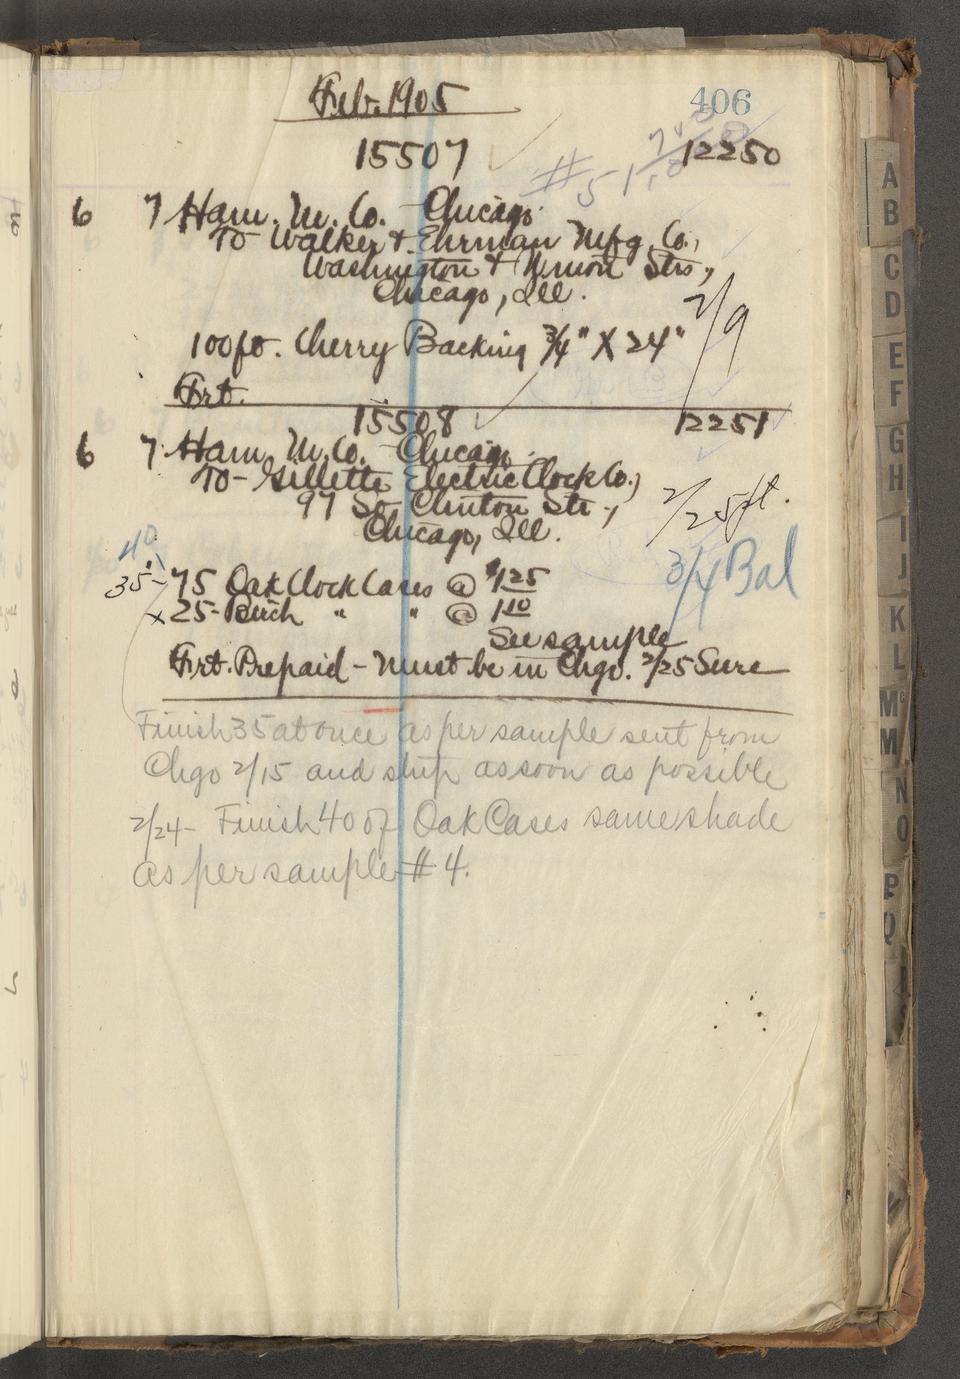 Feb. 1905
406
15507
12250
6 7 Ham. M. Co. Chicago.
To Walker & Ehrman Mfg. Co.,
Washington & Union Strs.,
Chicago, Ill.
2/9
100 ft. Cherry Backing 3/4" X 24"
Frt.
15508
12251
6 7. Ham. M. Co. Chicago.
To - Gillette Electric Clock Co.,
97 So. Clinton Str.,
Chicago, Ill.
2/25 pt.
3/4 Bal
40
35- 75 Oak Clock Cases @ $1.25
x 25- Birch " " @ 1.10
See sample
Frt. Prepaid - Must be in Chgo. 2/25 Sure
Finish 35 at once as per sample sent from
Chgo 2/15 and ship as soon as possible
2/24 - Finish 40 of Oak Cases same shade
as per sample # 4.
A
B
C
D
E
F
G
H
I
J
K
L
Mc
M
N
O
P
Q